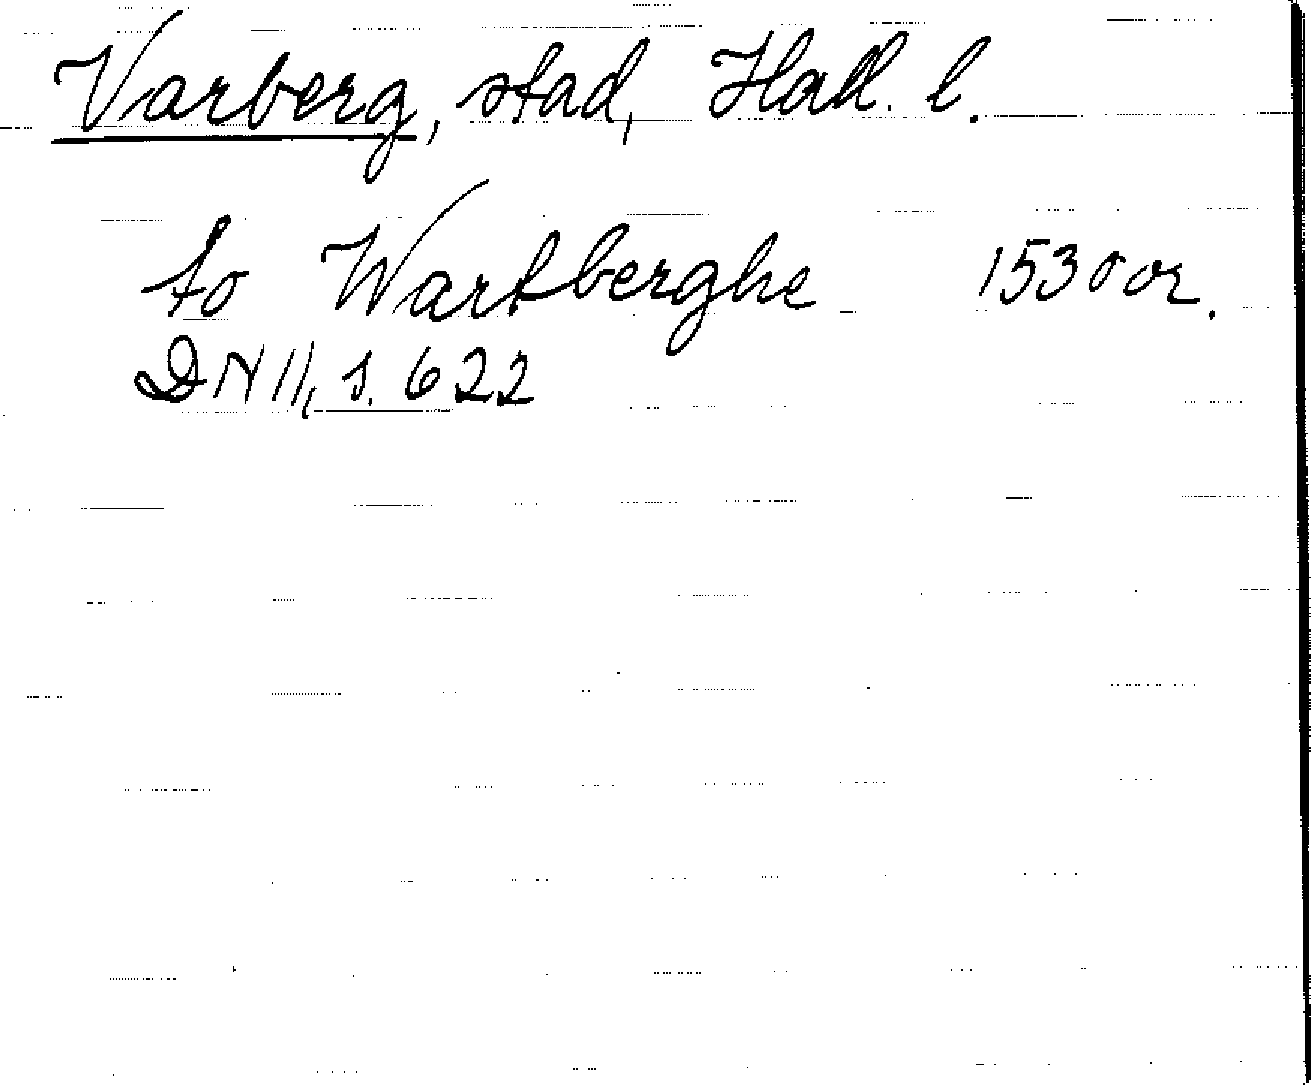 Varberg, stad, Hall. l.
to Wartberghe 1530 or.
DN 11, s. 622